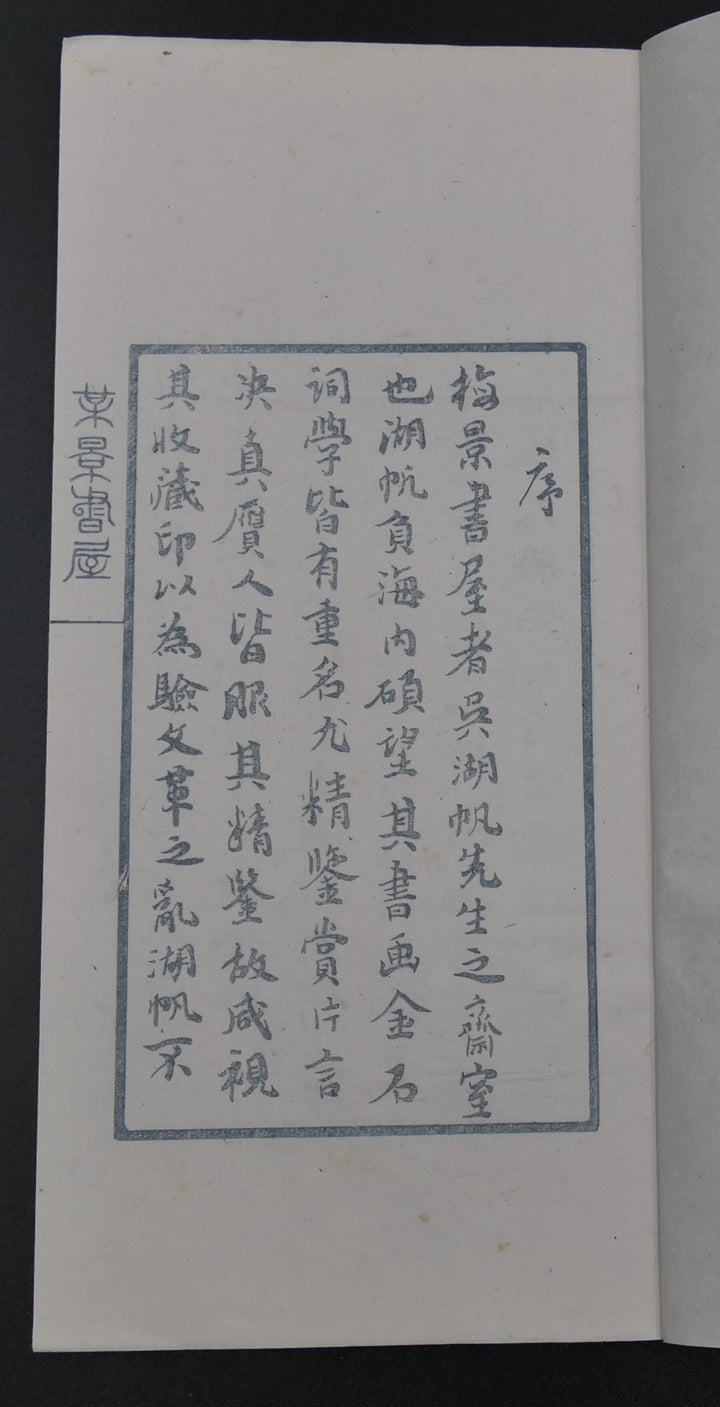 序
梅景書屋者吳湖帆先生之齋室
也湖帆負海内碩望其書画金石
詞學皆有重名尤精鑒賞片言
决真贋人皆服其精鑒故咸視
其收藏印以為驗文革之亂湖帆不
某景書屋